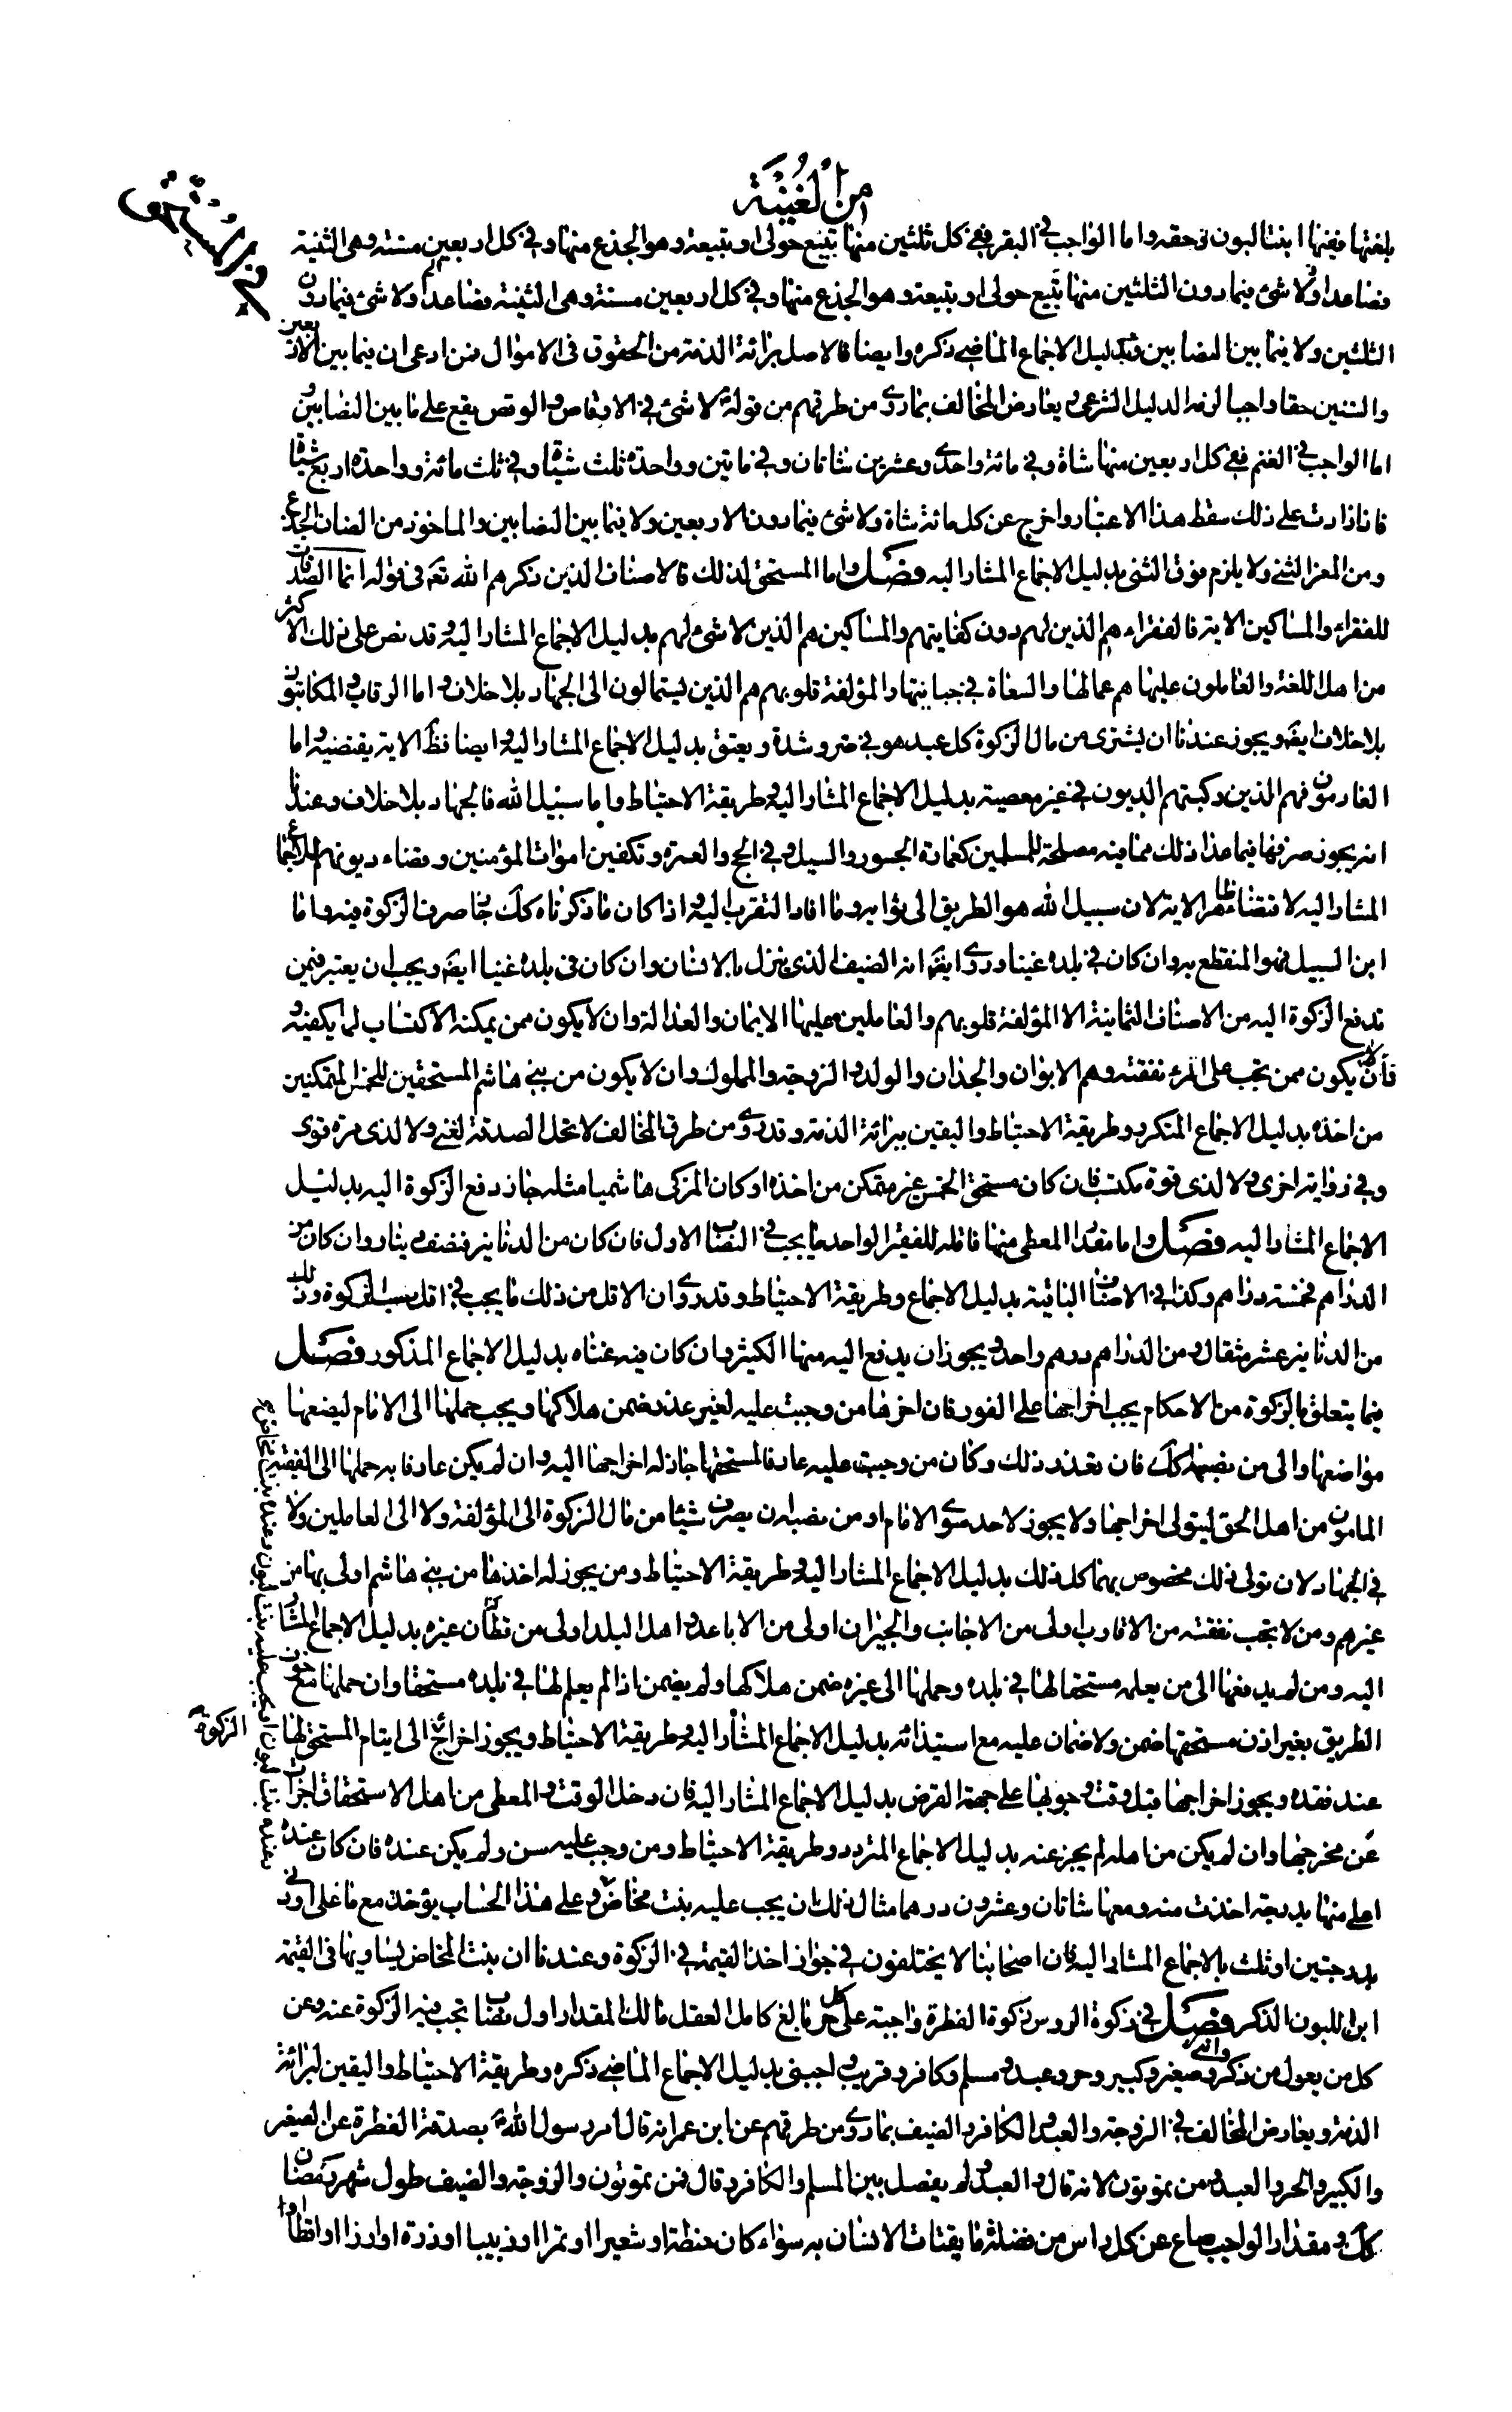 من الغنية
في المستحق
بلغتها ففيها ابنتا لبون وحقه واما الواجب في البقر ففي كل ثلثين منها تبيع حولى او تبيعة وهو الجذع منها وفي كل اربعين مسنة وهي الثنية
فصاعدا ولا شئ فيما دون الثلثين منها تبيع حولى او تبيعة وهو الجذع منها وفي كل اربعين مسنة وهي الثنية فصاعدا ولا شئ فيما دون
الثلثين ولا فيما بين النصابين بدليل الاجماع الماضي ذكره وايضا فالاصل برائة الذمة من الحقوق في الاموال فمن ادعى ان فيما بين الاربعين
والستين حقا واجبا لزمه الدليل الشرعي ويعارض المخالف بما روى من طرقهم من قوله لا شئ في الاوقاص والوقص يقع على ما بين النصابين و
اما الواجب في الغنم ففي كل اربعين منها شاة وفي مائة واحدى وعشرين شاتان وفي ماتين وواحدة ثلث شياة وفي ثلث مائة وواحدة اربع شياة
فاذا زادت على ذلك سقط هذا الاعتبار واخرج عن كل مائة شاة ولا شئ فيما دون الاربعين ولا فيما بين النصابين والماخوذ من الضان الجذع
ومن المعز الثني ولا يلزم فوق الثنى بدليل الاجماع المشار اليه فصل واما المستحق لذلك فالاصناف الذين ذكرهم الله تع في قوله انما الصدقات
للفقراء والمساكين الاية فالفقراء هم الذين لهم دون كفايتهم والمساكين هم الذين لا شئ لهم بدليل الاجماع المشار اليه وقد نص على ذلك الاكثر
من اهل اللغة والعاملون عليها هم عمالها والسعاة في جبايتها والمؤلفة قلوبهم هم الذين يستمالون الى الجهاد بلا خلاف واما الرقاب والمكاتبون
بلا خلاف ايضا ويجوز عندنا ان يشترى من مال الزكوة كل عبد هو في ضر وشدة ويعتق بدليل الاجماع المشار اليه وايضا فظ الاية يقتضيه واما
الغارمون فهم الذين ركبتهم الديون في غير معصية بدليل الاجماع المشار اليه وطريقة الاحتياط واما سبيل الله فالجهاد بلا خلاف وعندنا
انه يجوز صرفها فيما عدا ذلك مما فيه مصلحة للمسلمين كعمارة الجسور والسبل وفي الحج والعمرة وتكفين اموات المؤمنين وقضاء ديونهم للاجماع
المشار اليه لاقتضاء ظاهر الاية لان سبيل الله هو الطريق الى ثوابه وما افاد التقرب اليه واذا كان ما ذكرناه كك جاز صرف الزكوة فيه واما
ابن السبيل فهو المنقطع به وان كان في بلده غنيا وروى ايضا انه الضيف الذي ينزل بالانسان وان كان في بلده غنيا ايضا ويجب ان يعتبر فيمن
تدفع الزكوة اليه من الاصناف الثمانية الا المؤلفة قلوبهم والعاملين عليها الايمان والعدالة وان لا يكون ممن يمكنه الاكتساب لما يكفيه و
ان لا يكون ممن تجب على المرء نفقته وهم الابوان والجدان والولد والزوجة والمملوك وان لا يكون من بني هاشم المستحقين للخمس المتمكنين
من اخذه بدليل الاجماع المتكرر وطريقة الاحتياط واليقين ببرائة الذمة وقد روى من طرق المخالف لا تحل الصدقة لغني ولا لذى مرة قوى
وفي رواية اخرى ولا لذى قوة مكتسب فان كان مستحق الخمس غير متمكن من اخذه او كان المزكى هاشميا مثله جاز دفع الزكوة اليه بدليل
الاجماع المشار اليه فصل واما مقدار المعطى منها فاقله للفقير الواحد ما يجب في النصاب الاول فان كان من الدنانير فنصف دينار وان كان من
الدراهم فخمسة دراهم وكذا في الاصناف الباقية بدليل الاجماع وطريقة الاحتياط وقد روى ان الاقل من ذلك ما يجب في اقل نصب الزكوة وذلك
من الدنانير عشر مثقال ومن الدراهم درهم واحد ويجوز ان يدفع اليه منها الكثير وان كان فيه غناه بدليل الاجماع المذكور فصل
فيما يتعلق بالزكوة من الاحكام يجب اخراجها على الفور فان اخرها من وجبت عليه لغير عذر ضمن هلاكها ويجب حملها الى الامام ليضعها
مواضعها والى من نصبه كك فان تعذر ذلك وكان من وجبت عليه عارفا لمستحقها جاز له اخراجها اليه وان لم يكن عارفا به حملها الى الفقيه
المامون من اهل الحق ليتولى اخراجها ولا يجوز لاحد سوى الامام او من نصبه ان يصرف شيئا من مال الزكوة الى المؤلفة ولا الى العاملين ولا
في الجهاد لان تولى ذلك مخصوص بهما كل ذلك بدليل الاجماع المشار اليه وطريقة الاحتياط ومن يجوز له اخذها من بني هاشم اولى بها من
غيرهم ومن لا تجب نفقته من الاقارب اولى من الاجانب والجيران اولى من الاباعد واهل البلد اولى من قطان غيره بدليل الاجماع المشار
اليه ومن لم يدفعها الى من يعلمه مستحقا لها في بلده وحملها الى غيره ضمن هلاكها ولم يضمن اذا لم يعلم لها في بلده مستحقا وان حملها مع خوف
الطريق بغير اذن مستحقها ضمن ولا ضمان عليه مع استيذانه بدليل الاجماع المشار اليه وطريقة الاحتياط ويجوز اخراج الزكوة الى ايتام المستحق لها
عند فقده ويجوز اخراجها قبل وقت وجوبها على جهة القرض بدليل الاجماع المشار اليه فان دخل الوقت والمعطى من اهل الاستحقاق اجزات
عن مخرجها وان لم يكن من اهله لم يجز عنه بدليل الاجماع المتردد وطريقة الاحتياط ومن وجب عليه سن ولم يكن عنده فان كان عنده
اعلى منها بدرجة اخذت منه ومعها شاتان وعشرون درهما مثال ذلك ان يجب عليه بنت مخاض وعلى هذا الحساب يؤخذ مع ما على ادنى
بدرجتين او ثلث بالاجماع المشار اليه فان اصحابنا لا يختلفون في جواز اخذ القيمة في الزكوة وعندنا ان بنت المخاض يساويها في القيمة
ابن اللبون الذكر فصل في زكوة الروس زكوة الفطرة واجبة على كل حر بالغ كامل العقل مالك المقدار اول نصاب تجب فيه الزكوة عنه وعن
كل من يعول من ذكر وانثى وصغير وكبير وحر وعبد ومسلم وكافر وقريب واجنبى بدليل الاجماع الماضي ذكره وطريقة الاحتياط واليقين لبرائة
الذمة ويعارض المخالف في الزوجة والعبد الكافر والضيف بما روى من طرقهم عن ابن عمر انه قال امر رسول الله بصدقة الفطرة عن الصغير
والكبير والحر والعبد ومن تمونون لانه قال والعبد ولم يفصل بين المسلم والكافر وقال فمن تمونون والزوجة والضيف طول شهر رمضان
كك ومقدار الواجب صاع عن كل راس من فضلة ما يقتات الانسان به سواء كان حنطة او شعيرا او تمرا او زبيبا او ذرة او ارزا او اقطا او